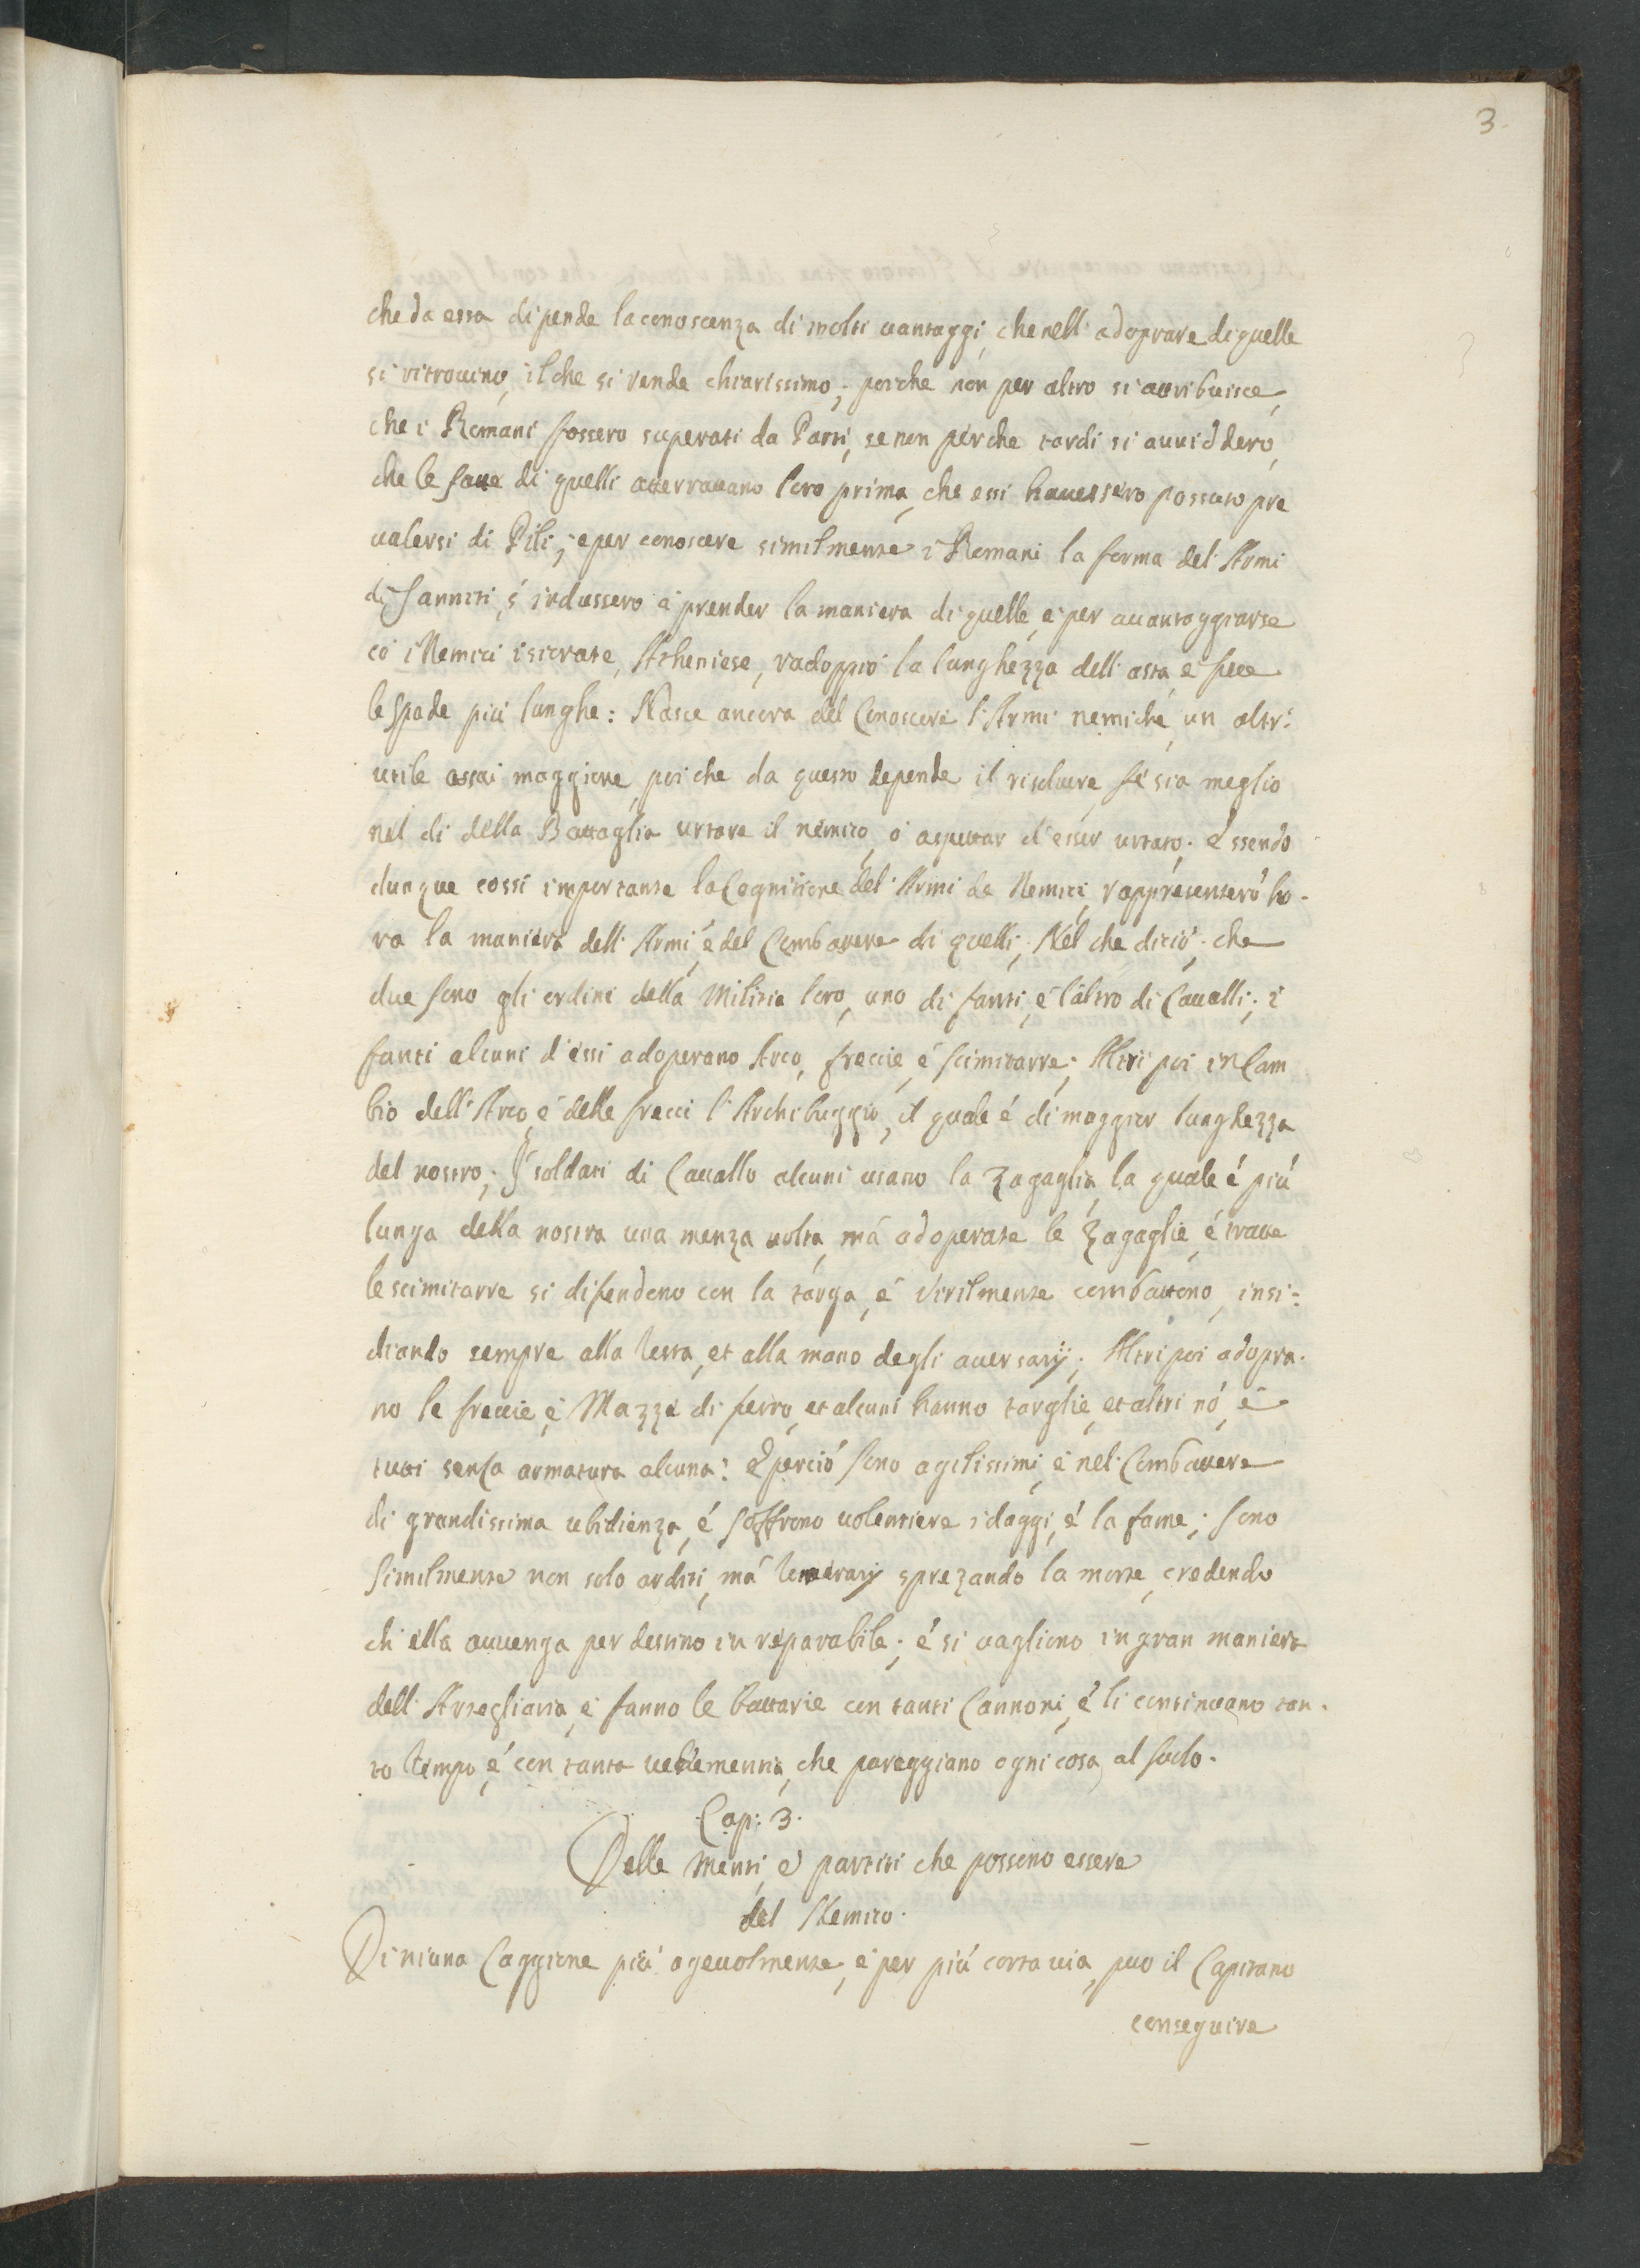 3.
che da essa dipende la conoscenza di molti uantaggi, che nell' adoprare di quelle
si ritrouino, il che si rende chiarissimo; poiche non per altro si attribuisce,
che i Romani fossero superati da Parti, se non perche tardi si auuiddero,
che le  di quelli atterrauano loro prima, che essi hauessero possuto pre
ualersi di Pili; e per conoscere similmente i Romani la forma del' Armi
di Sanniti, s' indussero à prender la maniera di quelle, e per auantaggiarse
co i Nemici isicrate, Atheniese, radoppiò la lunghezza dell' asta, e fece
le spade più lunghe: Nasce ancora del Conoscere l' Armi nemiche, un altr'
utile assai maggiore, poi che da questo depende il risoluere, se sia meglio
nel di della Battaglia urtare il nemico, ò aspettar d' esser urtato. Essendo
dunque cossi importante la Cognitione del' Armi de Nemici, rappresenterò ho-
ra la maniera dell' Armi, e del Combattere di quelli; Nel che dicio; che
due sono gli ordini della Militia loro, uno di fanti, e l' altro di Caualli; i
fanti alcuni d' essi adoperano Arco, freccie, é scimitarre; Altri poi in Cam
bio dell' Arco, e delle frecci l' Archibuggio, il quale é di maggior lunghezza
del nostro; I soldati di Cauallo alcuni usano la Zagaglia, la quale é più
lunga della nostra una menza uolta, má adoperate le Zagaglie, é tratte
le scimitarre si difendono con la targa, é Virilmente combattono, insi=
diando sempre alla testa, et alla mano degli auersarij; Altri poi adopra-
no le freccie, e Mazze di ferro, et alcuni hanno targhe, et altri nó, e
tutti senza armatura alcuna: E perció sono agilissimi, e nel Combattere
di grandissima ubidienza, é soffrono uolentiere i daggi, é la fame; sono
similmente non solo arditi, má temerarij sprezando la morte, credendo
ch' ella auuenga per destino in reparabile; é si uagliono in gran maniera
dell' Artegliaria, e fanno le battarie con tanti Cannoni, é li continuano tan-
to tempo, é con tanta uehementia, che pareggiano ogni cosa al suolo.
Cap: 3.
Delle Menti, e partiti che possono essere
del Nemico.
Di niuna Caggione più ageuolmente, e per piú corta uia, puo il Capitano
conseguire